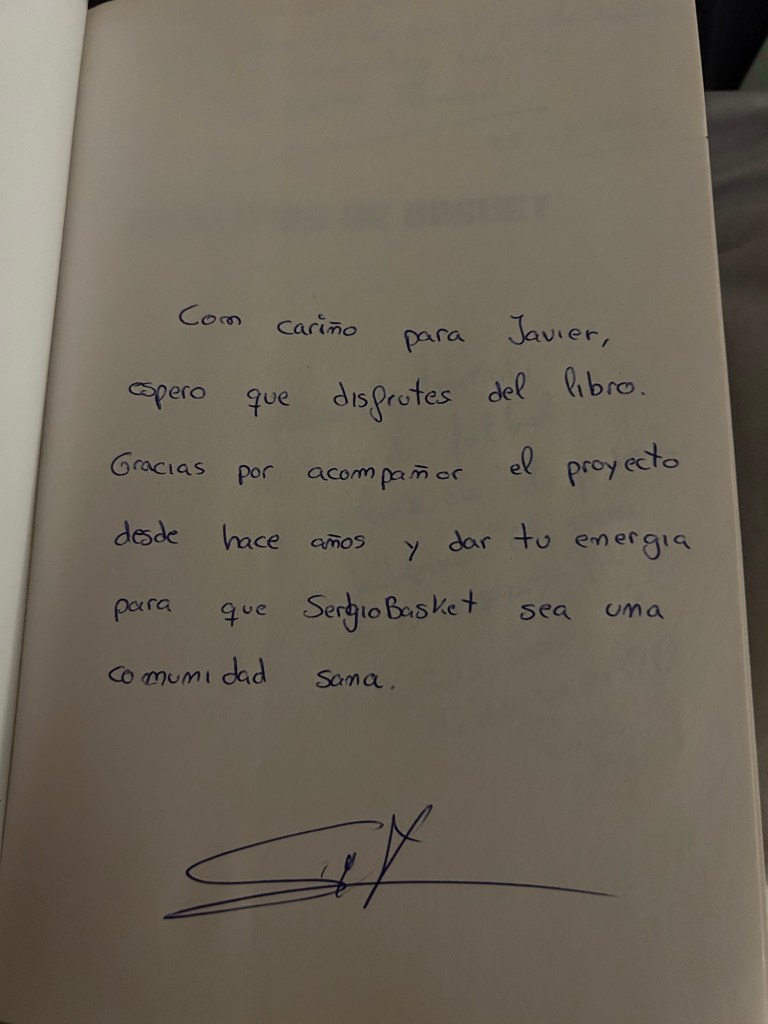 Con cariño para Javier,
espero que disfrutes del libro.
Gracias por acompañar el proyecto
desde hace años y dar tu energia
para que SergioBasket sea una
comunidad sana.